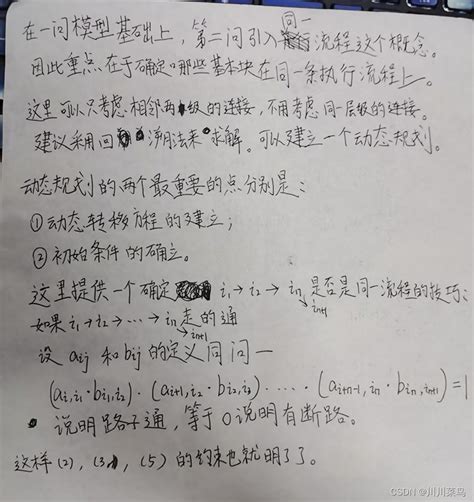 在一问模型基础上，第二问引入同一流程这个概念。
因此重点在于确定哪些基本块在同一条执行流程上。
这里可以只考虑相邻两级的连接，不用考虑同一层级的连接。
建议采用回溯法来求解。可以建立一个动态规划。
动态规划的两个最重要的点分别是：
①动态转移方程的建立；
②初始条件的确立。
这里提供一个确定 i₁→i₂→iₙ→iₙ₊₁ 是否是同一流程的技巧：
如果 i₁→i₂→⋯→iₙ→iₙ₊₁ 走的通
设 aij 和 bij 的定义同问一
(ai,i₁·bi₁,i₂)·(ai+1,i₂·bi₂,i₃)·⋯·(ai+n-1,iₙ·biₙ,iₙ₊₁)=1
说明路子通，等于0说明有断路。
这样(2)，(3)，(5)的约束也就明了了。
CSDN @川川菜鸟